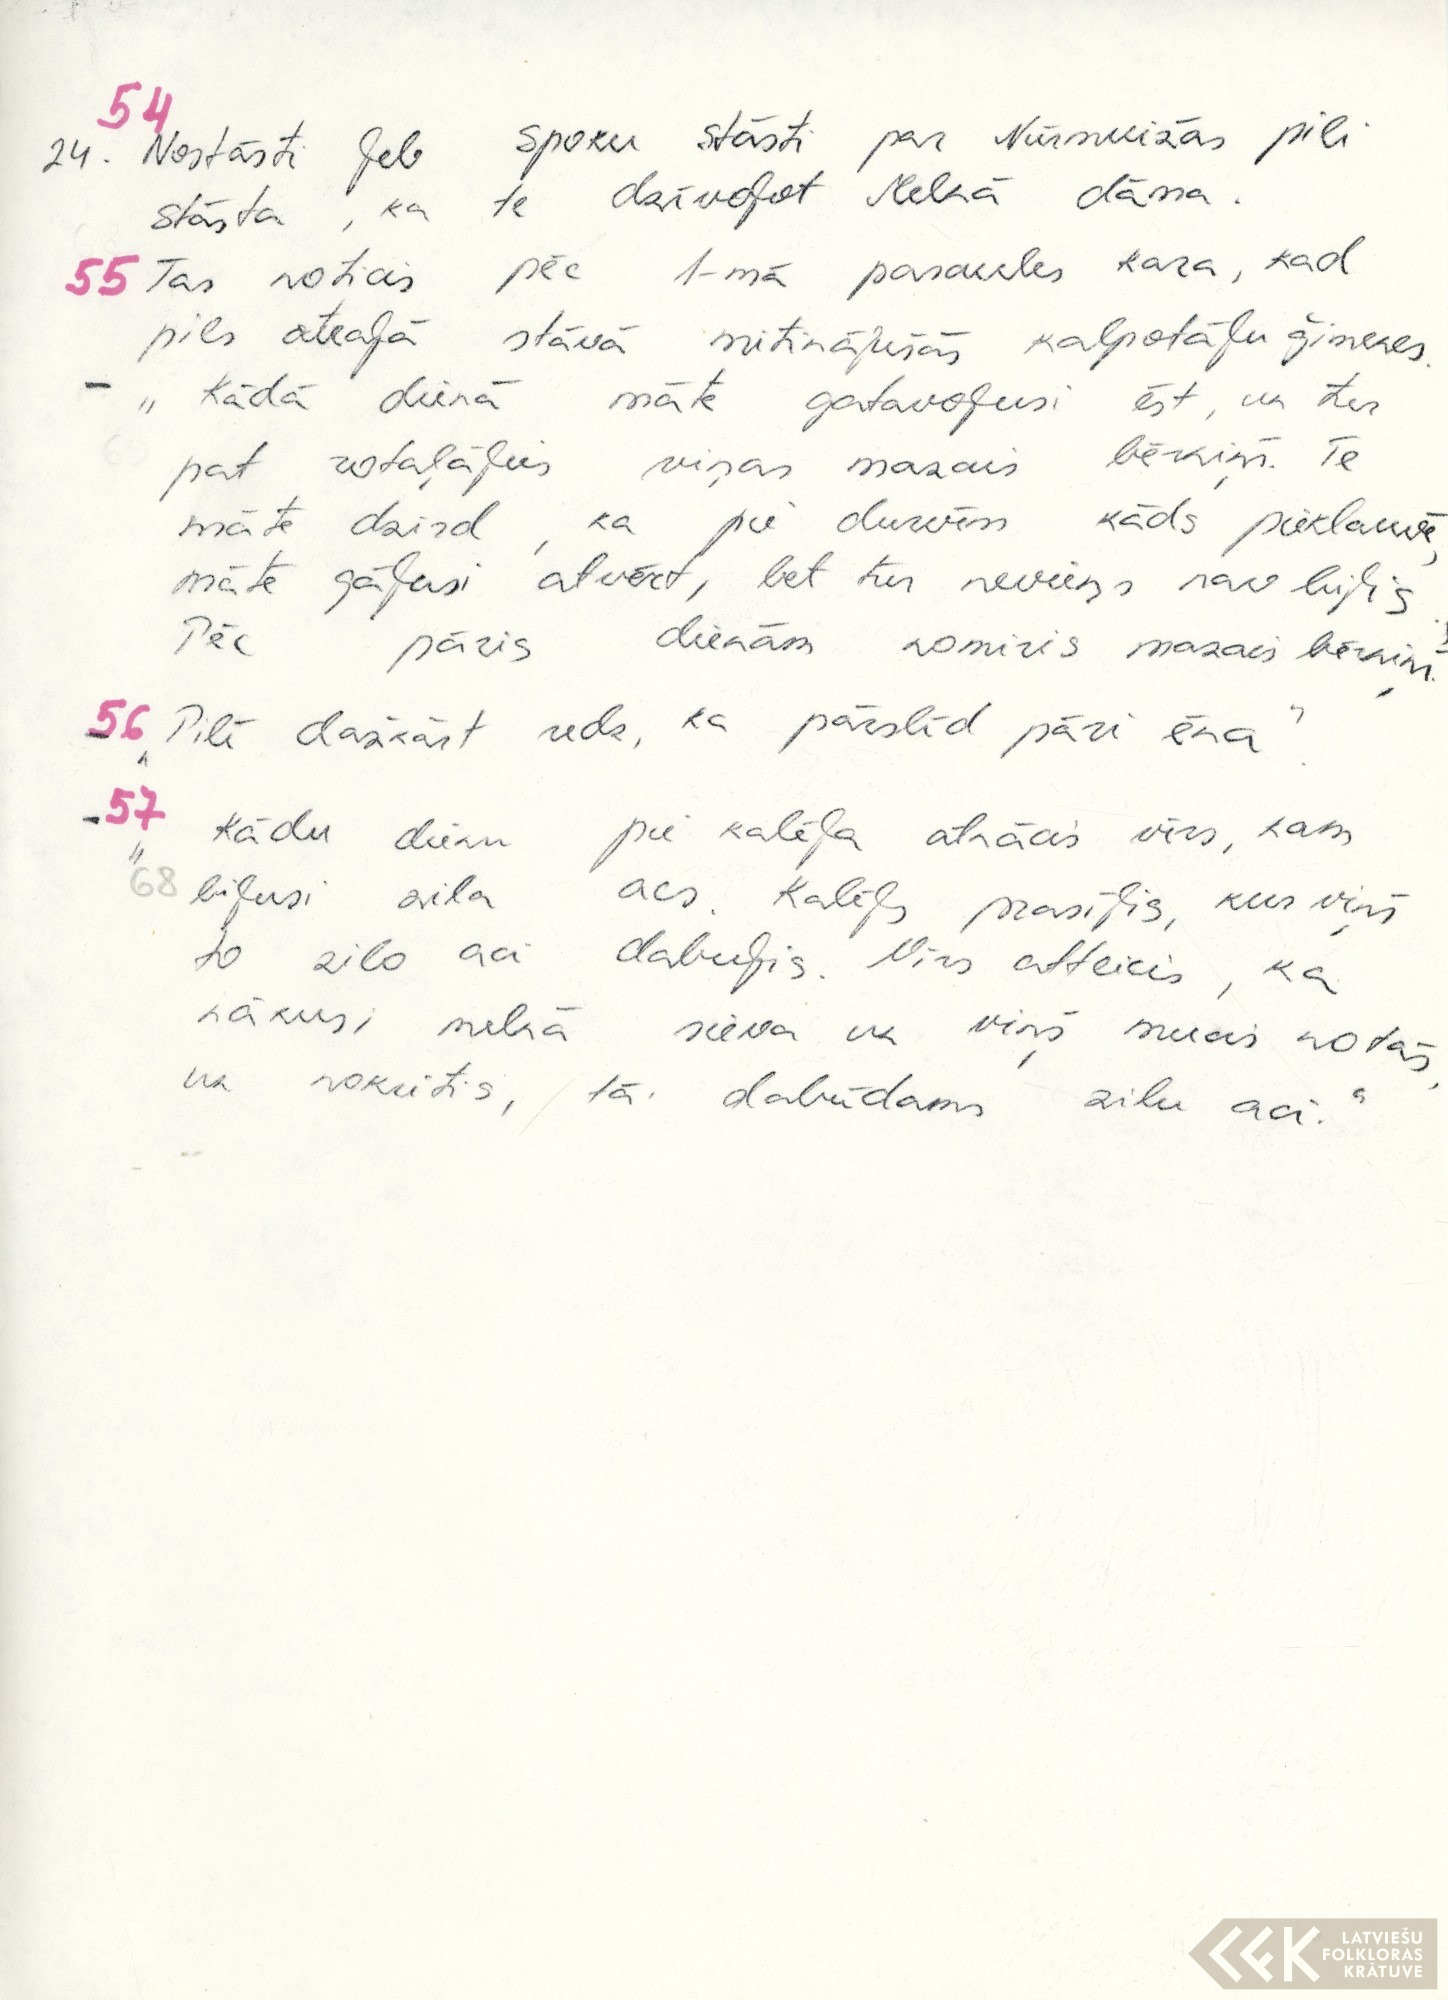 54
24. Nostāsti jeb spoku stāsti par Nurmuižas pili
stāsta, ka te dzīvojot Melnā dāma.
55 Tas noticis pēc 1-mā pasaules kara, kad
pils otrajā stāvā mitinājušās kalpotāju ģimenes.
- „Kādā dienā māte gatavojusi ēst, un tur
pat rotaļājies viņas mazais bērniņš. Te
māte dzird, ka pie durvīm kāds pieklauvē,
māte gājusi atvērt, bet tur neviens nav bijis.
Pēc pāris dienām nomiris mazais bērniņš."
- 56 „Pilī dažkārt redz, ka pārslīd pāri ēna".
- 57
„Kādu dienu pie kalēja atnācis vīrs, kam
68 bijusi zila acs. Kalējs prasījis, kur viņš
to zilo aci dabujis. Vīrs atteicis, ka
nākusi melnā sieva un viņš mucis notās,
un nokritis, tā dabūdams zilu aci."
LATVIEŠU
FOLKLORAS
KRĀTUVE